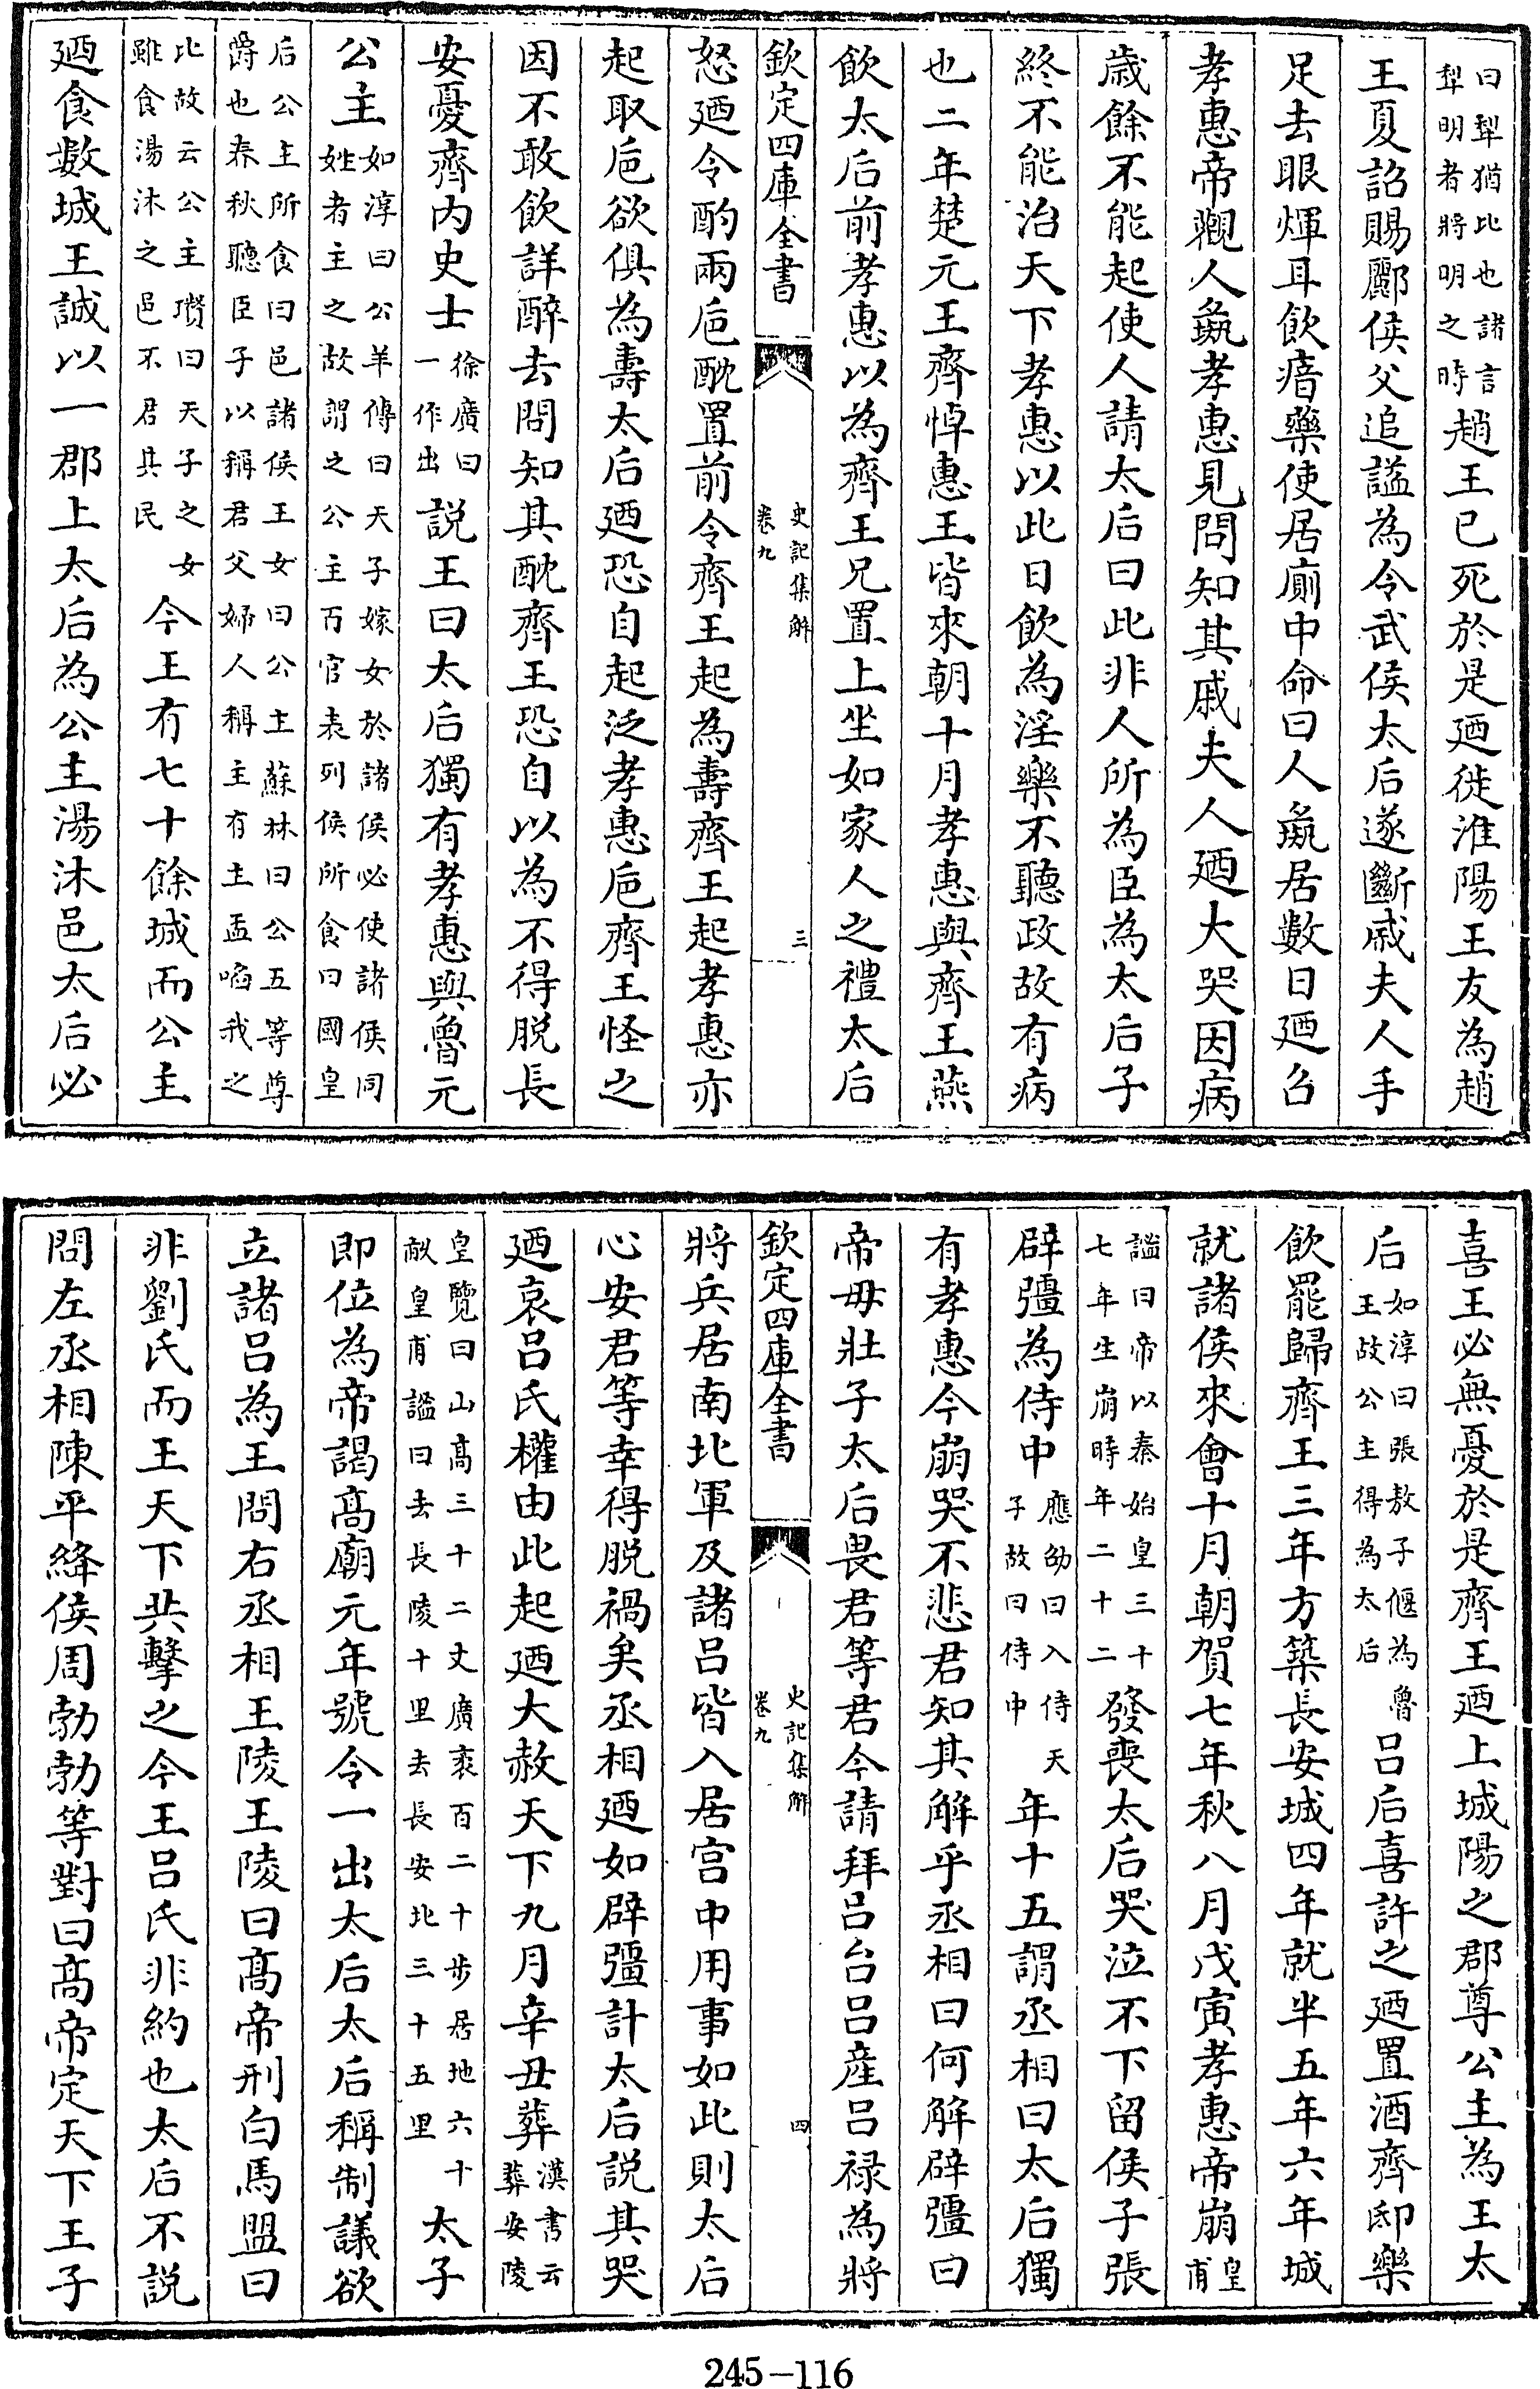 曰犂猶比也諸言犂明者將明之時趙王已死於是廼徙淮陽王友為趙
王夏詔賜酈侯父追諡為令武侯太后遂斷戚夫人手
足去眼煇耳飲瘖藥使居廁中命曰人彘居數日廼召
孝惠帝觀人彘孝惠見問知其戚夫人廼大哭因病
歲餘不能起使人請太后曰此非人所為臣為太后子
終不能治天下孝惠以此日飲為淫樂不聽政故有病
也二年楚元王齊悼惠王皆來朝十月孝惠與齊王燕
飲太后前孝惠以為齊王兄置上坐如家人之禮太后
欽定四庫全書 史記集解 卷九 三
怒廼令酌兩巵酖置前令齊王起為壽齊王起孝惠亦
起取巵欲俱為壽太后廼恐自起泛孝惠巵齊王怪之
因不敢飲詳醉去問知其酖齊王恐自以為不得脱長
安憂齊内史士徐廣曰一作出説王曰太后獨有孝惠與魯元
公主如淳曰公羊傳曰天子嫁女於諸侯必使諸侯同姓者主之故謂之公主百官表列侯所食曰國皇
后公主所食曰邑諸侯王女曰公主蘇林曰公五等尊爵也春秋聽臣子以稱君父婦人稱主有主孟啗我之
比故云公主瓚曰天子之女雖食湯沐之邑不君其民今王有七十餘城而公主
廼食數城王誠以一郡上太后為公主湯沐邑太后必
喜王必無憂於是齊王廼上城陽之郡尊公主為王太
后如淳曰張敖子偃為魯王故公主得為太后吕后喜許之廼置酒齊邸樂
飲罷歸齊王三年方築長安城四年就半五年六年城
就諸侯來會十月朝賀七年秋八月戊寅孝惠帝崩皇甫
謚曰帝以秦始皇三十七年生崩時年二十二發喪太后哭泣不下留侯子張
辟彊為侍中應劭曰入侍天子故曰侍中年十五謂丞相曰太后獨
有孝惠今崩哭不悲君知其解乎丞相曰何解辟彊曰
帝毋壯子太后畏君等君今請拜吕台吕産吕禄為將
欽定四庫全書 史記集解 卷九 四
將兵居南北軍及諸吕皆入居宫中用事如此則太后
心安君等幸得脱禍矣丞相廼如辟彊計太后説其哭
廼哀吕氏權由此起廼大赦天下九月辛丑葬漢書云葬安陵
皇覽曰山髙三十二丈廣袤百二十步居地六十畝皇甫謚曰去長陵十里去長安北三十五里太子
即位為帝謁髙廟元年號令一出太后太后稱制議欲
立諸吕為王問右丞相王陵王陵曰髙帝刑白馬盟曰
非劉氏而王天下共擊之今王吕氏非約也太后不説
問左丞相陳平絳侯周勃勃等對曰髙帝定天下王子
245-116